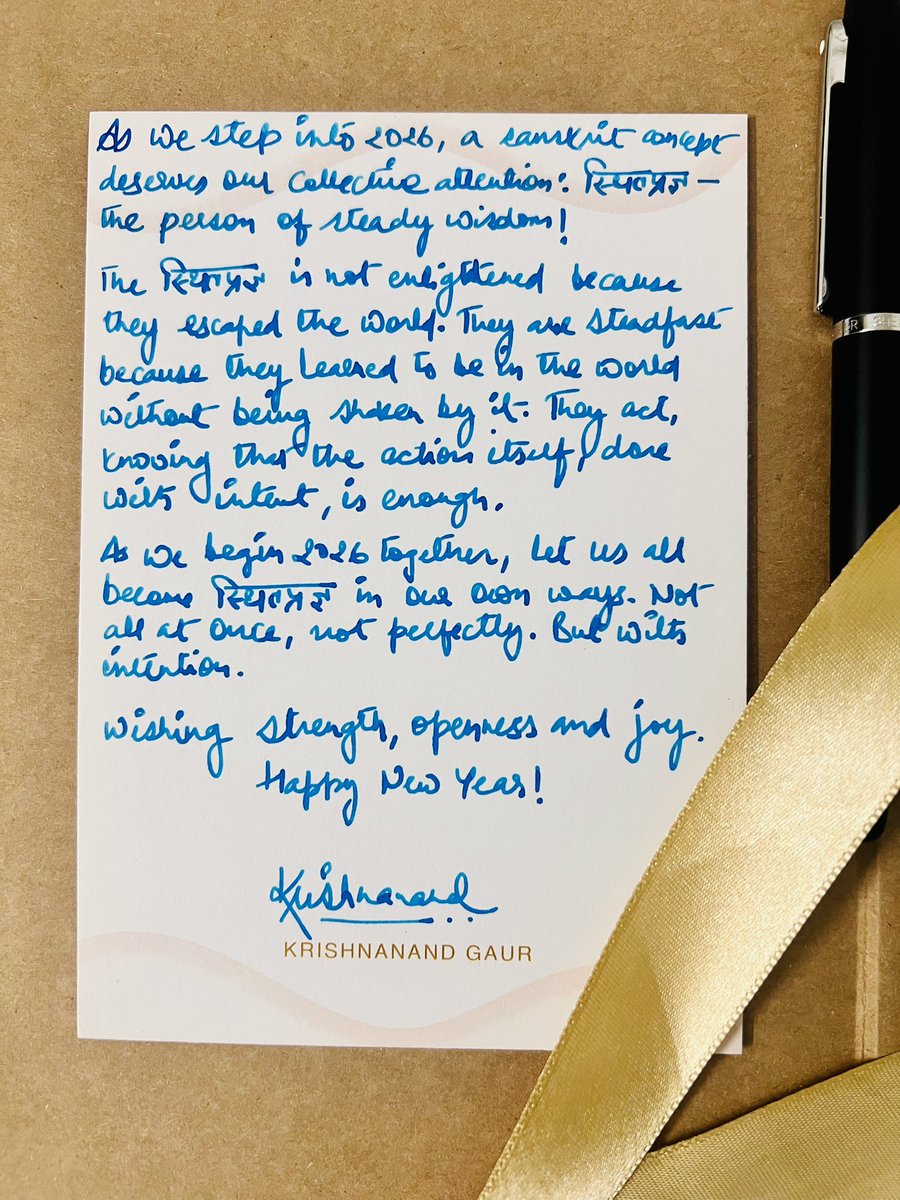 As we step into 2026, a sanskrit concept
deserves our collective attention: स्थितप्रज्ञ —
the person of steady wisdom!
The स्थितप्रज्ञ is not enlightened because
they escaped the world. They are steadfast
because they learned to be in the world
without being shaken by it. They act,
knowing that the action itself, done
with intent, is enough.
As we begin 2026 together, let us all
become स्थितप्रज्ञ in our own ways. Not
all at once, not perfectly. But with
intention.
Wishing strength, openness and joy.
Happy New Year!
Krishnanand
KRISHNANAND GAUR